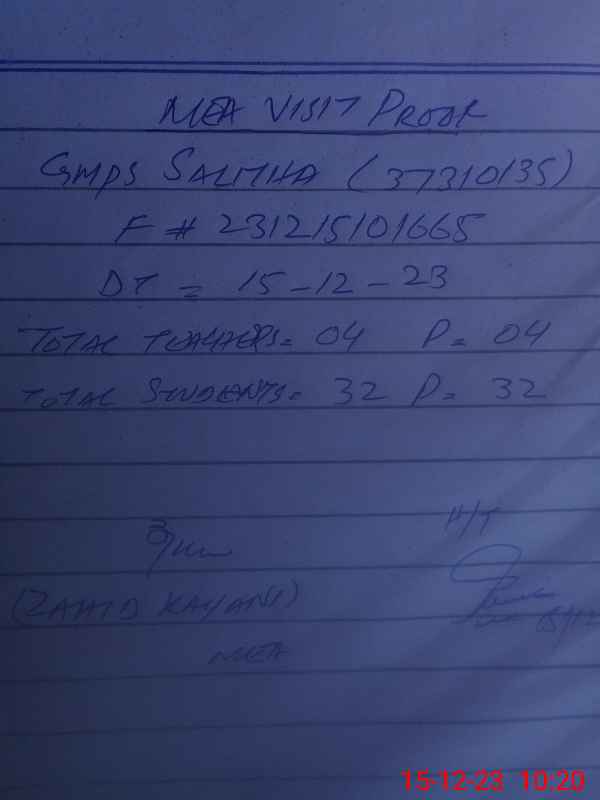 MEA VISIT PROOF
GMPS SALITHA (37310135)
F # 231215101665
DT = 15-12-23
TOTAL TEACHERS = 04 P = 04
TOTAL STUDENTS = 32 P = 32
H/T
(ZAHID KAYANI)
15/12
MEA
15-12-23 10:20